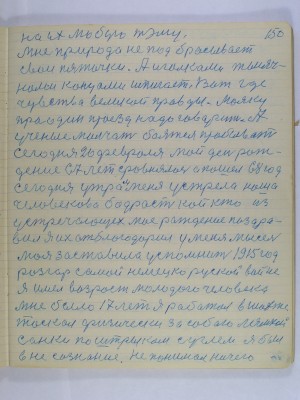 на их мыбую тему.
150
мне природа не подбрасывает
свои пяточки. А иголками
концами шпигает. Вот где
чувства великой правды.
правдин поезд надоговарить. А
ученые молчат боятся пробивать
сегодня 26 февроля мой ден рож-
дение 67 лет сровнялось а пошел 68 год
сегодня утра меня устрела наша
человекова бодрасть кой кто из
устречающех мое раждение поздра-
вил я их отблогодорил у меня мысел
моя заставила успомнит 1915 год
розгар самой немецко руской войне
я имел возрост молодого человека
мне было 17 лет я работал в шахте
таскал физически за собаю
санки по штрикам с углем я был
в не сознание. не понимал ничего